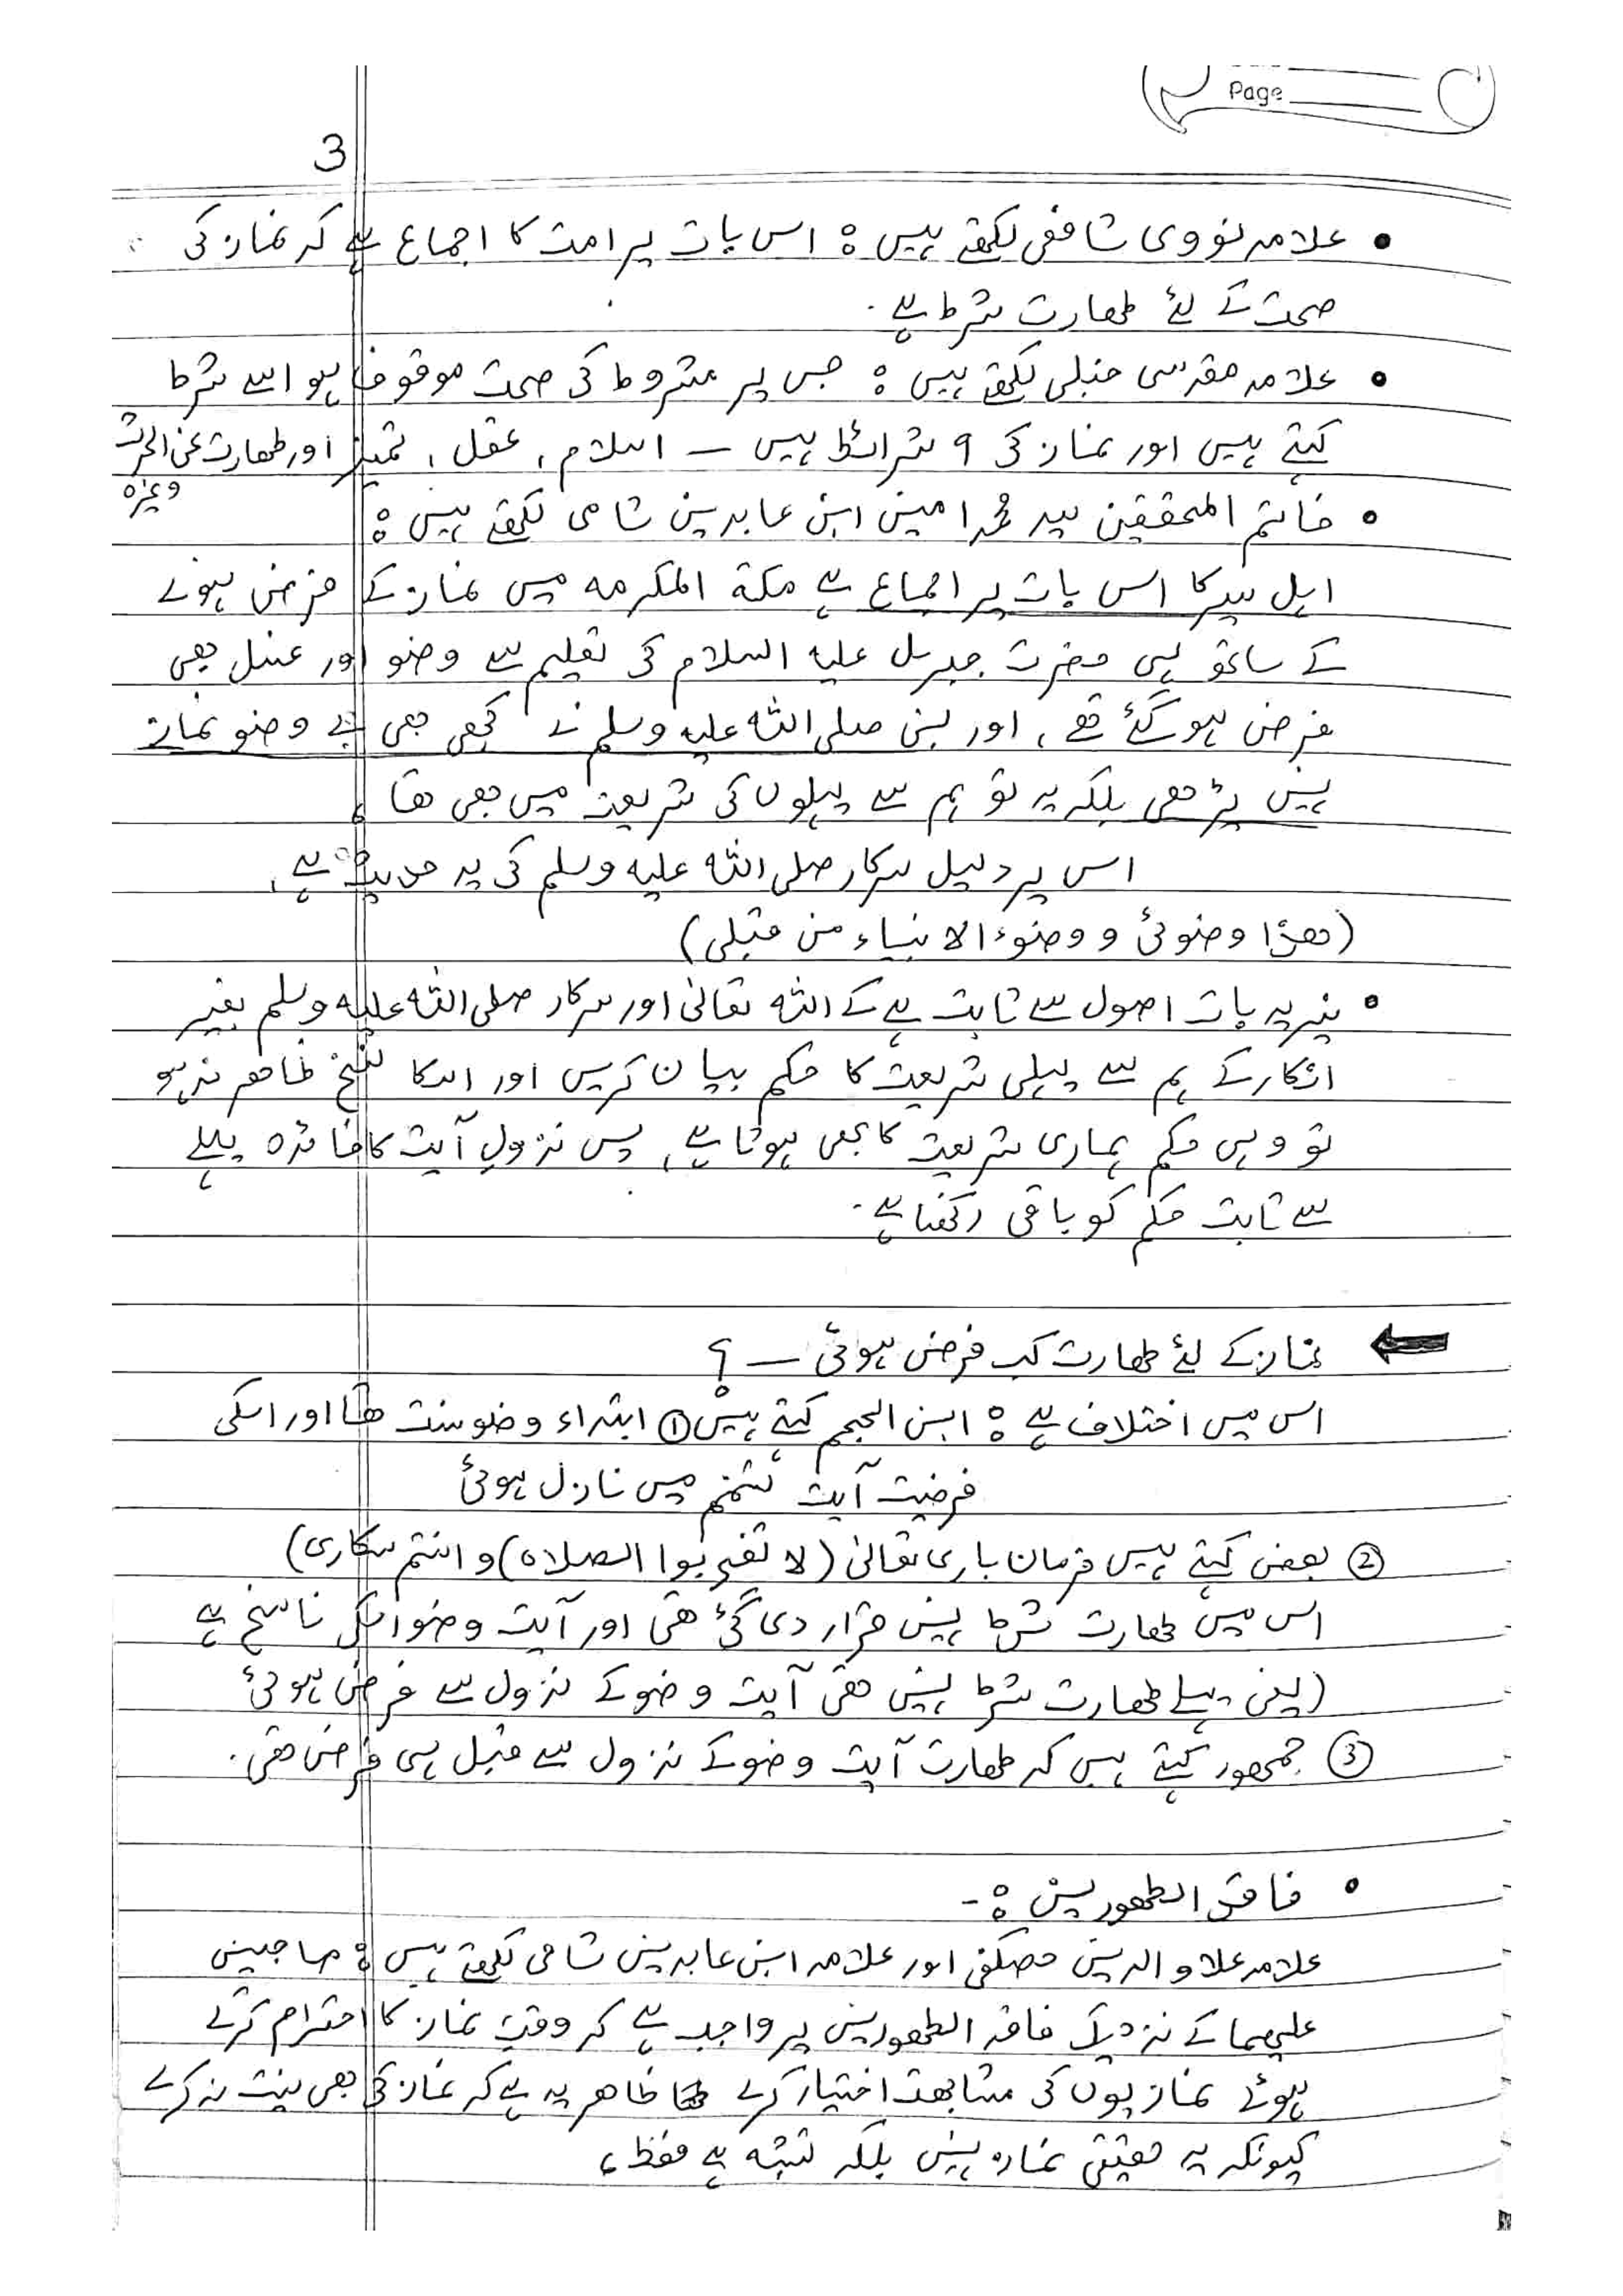 Page
3
• علامہ نووی شافعی لکھتے ہیں ہ اس بات پر امت کا اجماع ہے کہ نماز کی
صحت کے لئے طھارت شرط ہے۔
• علامہ مقدسی حنبلی لکھتے ہیں ہ جس پر مشروط کی صحت موقوف ہو اسے شرط
کہتے ہیں اور نماز کی ۹ شرائط ہیں – اسلام، عقل، تمیز اور طھارت عن الحدث
وغیرہ
• خاتم المحققین سید محمد امین ابن عابدین شامی لکھتے ہیں ہ
اہل سیر کا اس بات پر اجماع ہے مکۃ المکرمہ میں نماز کے فرض ہونے
کے ساتھ ہی حضرت جبریل علیہ السلام کی تعلیم سے وضو اور غسل بھی
فرض ہو گئے تھے، اور نبی صلی اللہ علیہ وسلم نے کبھی بھی بے وضو نماز
نہیں پڑھی بلکہ یہ تو ہم سے پہلوں کی شریعت میں بھی تھا،
اس پر دلیل سرکار صلی اللہ علیہ وسلم کی یہ حدیث ہے،
(ھذا وضوئی و وضوء الانبیاء من قبلی)
• نیز یہ بات اصول سے ثابت ہے کے اللہ تعالیٰ اور سرکار صلی اللہ علیہ وسلم بغیر
انکار کے ہم سے پہلی شریعت کا حکم بیان کریں اور اسکا نسخ ظاھر نہ ہو
تو وہی حکم ہماری شریعت کا بھی ہوتا ہے، پس نزولِ آیت کا فائدہ پہلے
سے ثابت حکم کو باقی رکھنا ہے۔
نماز کے لئے طھارت کب فرض ہوئی – ؟
اس میں اختلاف ہے ہ ابن الجھم کہتے ہیں ① ابتداء وضو سنت تھا اور اسکی
فرضیت آیت تیمم میں نازل ہوئی
② بعض کہتے ہیں فرمان باری تعالیٰ (لا تقربوا الصلاۃ) و انتم سکاری)
اس میں طھارت شرط نہیں قرار دی گئی تھی اور آیت وضو اسکی ناسخ ہے
(یعنی پہلے طھارت شرط نہیں تھی آیت وضو کے نزول سے فرض ہوئی
③ جمھور کہتے ہیں کہ طھارت آیت وضو کے نزول سے قبل ہی فرض تھی۔
• فاقد الطھورین ہ-
علامہ علاو الدین حصکفی اور علامہ ابن عابدین شامی لکھتے ہیں ہ صاحبین
علیھما کے نزدیک فاقد الطھورین پر واجب ہے کہ وقتِ نماز کا احترام کرتے
ہوئے نمازیوں کی مشابھت اختیار کرے ظاھر یہ ہے کہ نماز کی بھی نیت نہ کرے
کیونکہ یہ حقیقی نماز نہیں بلکہ تشبہ ہے فقط،